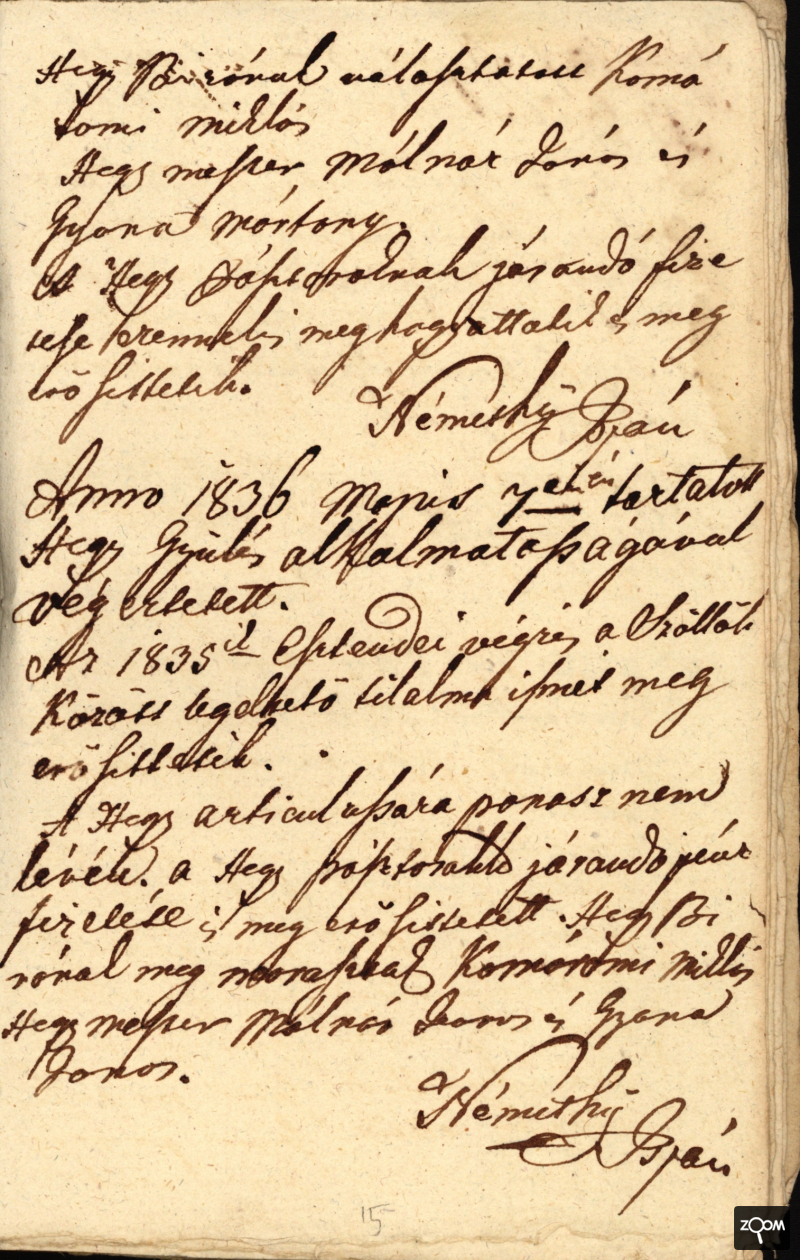 Hegy Birónak választatott Komá
romi Miklós
Hegy mester Mólnár János és
Gyana Mártony.
A Hegy Pásztoroknak járandó fize
tése ezennel is meghagyattatik és meg
erősittetik.
Némethÿ István
Anno 1836 Majus 7dikén tartatott
Hegy Gyülés alkalmatosságával
vég ertetett.
Az 1835ik Esztendei végzés a Szöllők
Között legeltető tilalma ismét meg
erősittetik.
A Hegy articulussára panasz nem
lévén. a Hegy pásztorokk járandó
fizetése is meg erősittetett. Hegy Bi
rónak meg maraszttat Komáromi Miklós
Hegymester Mólnár Janos és Gyana
Janos.
Némethÿ
István
15
ZOOM